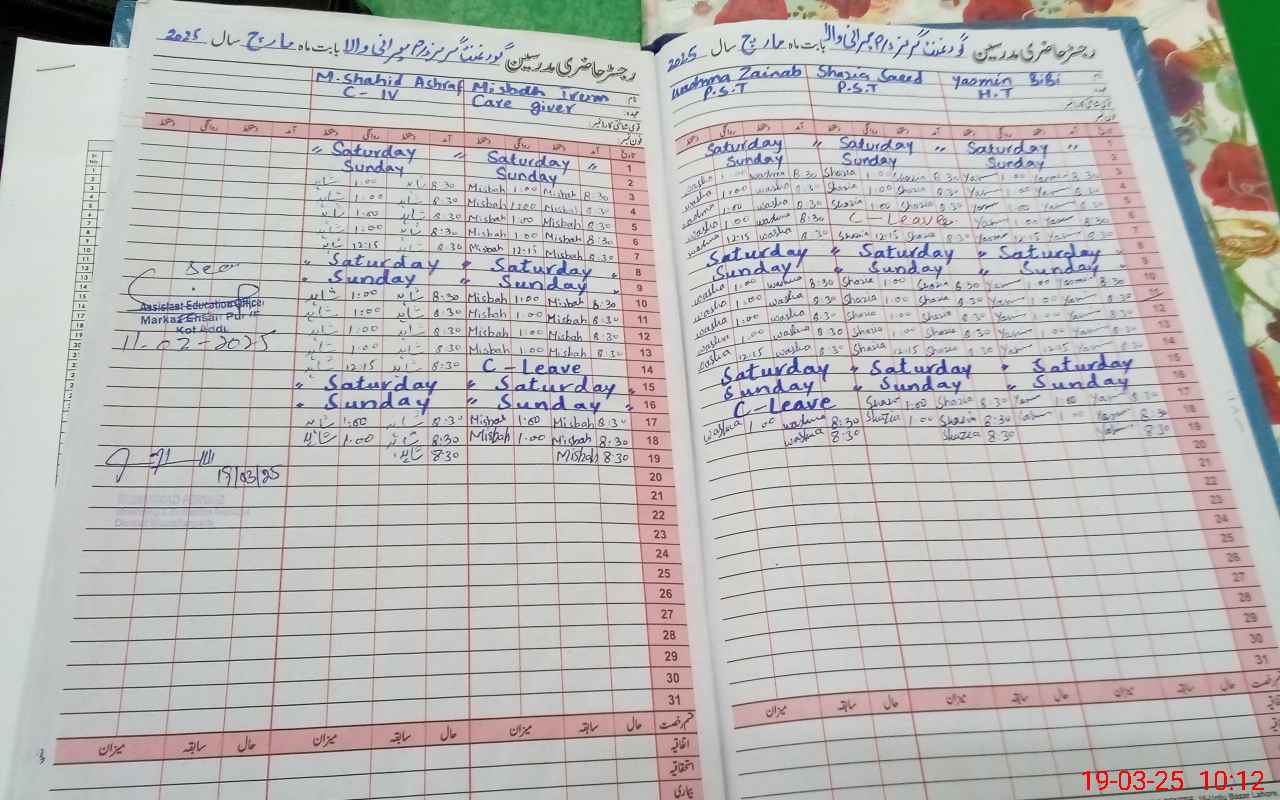 رجسٹر حاضری مدرسین گورنمنٹ گرلز پرائمری بابت ماہ مارچ سال 2025
Misbah Irum M.Shahid Ashraf
Care giver C-IV
تاریخ آمد دستخط روانگی دستخط آمد دستخط روانگی دستخط آمد دستخط روانگی دستخط
1 " Saturday " Saturday "
2 Sunday Sunday
3 8:30 Misbah 1:00 Misbah 8:30 شاہد 1:00 شاہد
4 8:30 Misbah 1:00 Misbah 8:30 شاہد 1:00 شاہد
5 8:30 Misbah 1:00 Misbah 8:30 شاہد 1:00 شاہد
6 8:30 Misbah 1:00 Misbah 8:30 شاہد 1:00 شاہد
7 8:30 Misbah 12:15 Misbah 8:30 شاہد 12:15 شاہد
8 " Saturday " Saturday "
9 " Sunday " Sunday "
10 8:30 Misbah 1:00 Misbah 8:30 شاہد 1:00 شاہد
11 8:30 Misbah 1:00 Misbah 8:30 شاہد 1:00 شاہد
12 8:30 Misbah 1:00 Misbah 8:30 شاہد 1:00 شاہد
13 8:30 Misbah 1:00 Misbah 8:30 شاہد 1:00 شاہد
14 C-Leave 8:30 شاہد 12:15 شاہد
15 " Saturday " Saturday "
16 " Sunday " Sunday "
17 8:30 Misbah 1:00 Misbah 8:30 شاہد 1:00 شاہد
18 8:30 Misbah 1:00 Misbah 8:30 شاہد 1:00 شاہد
19 8:30 Misbah 8:30 شاہد
20
21
22
23
24
25
26
27
28
29
30
31
قسم رخصت حال سابقہ میزان حال سابقہ میزان حال سابقہ میزان
اتفاقیہ
استحقاقیہ
بیماری
See
Assistant Education Officer
Markaz Ehsan Pur
Kot Addu
11-02-2025
19/03/25
رجسٹر حاضری مدرسین گورنمنٹ گرلز پرائمری بابت ماہ مارچ سال 2025
Yasmin BiBi Shazia Saeed Washma Zainab
H.T P.S.T P.S.T
تاریخ آمد دستخط روانگی دستخط آمد دستخط روانگی دستخط آمد دستخط روانگی دستخط
1 Saturday " Saturday " Saturday "
2 Sunday Sunday Sunday
3 8:30 Yasmin 1:00 8:30 Shazia 1:00 Shazia 8:30 washma 1:00 washma
4 8:30 1:00 8:30 Shazia 1:00 Shazia 8:30 washma 1:00 washma
5 8:30 1:00 8:30 Shazia 1:00 Shazia 8:30 washma 1:00 washma
6 8:30 1:00 C-Leave 8:30 washma 1:00 washma
7 8:30 12:15 8:30 Shazia 12:15 Shazia 8:30 washma 12:15 washma
8 Saturday " Saturday " Saturday "
9 Sunday " Sunday " Sunday "
10 8:30 1:00 8:30 Shazia 1:00 Shazia 8:30 washma 1:00 washma
11 8:30 1:00 8:30 Shazia 1:00 Shazia 8:30 washma 1:00 washma
12 8:30 1:00 8:30 Shazia 1:00 Shazia 8:30 washma 1:00 washma
13 8:30 1:00 8:30 Shazia 1:00 Shazia 8:30 washma 1:00 washma
14 8:30 12:15 8:30 Shazia 12:15 Shazia 8:30 washma 12:15 washma
15 Saturday " Saturday " Saturday
16 Sunday " Sunday " Sunday
17 8:30 1:00 8:30 Shazia 1:00 Shazia C-Leave
18 8:30 1:00 8:30 Shazia 1:00 Shazia 8:30 washma 1:00 washma
19 8:30 8:30 Shazia 8:30 washma
20
21
22
23
24
25
26
27
28
29
30
31
قسم رخصت حال سابقہ میزان حال سابقہ میزان حال سابقہ میزان
19-03-25 10:12